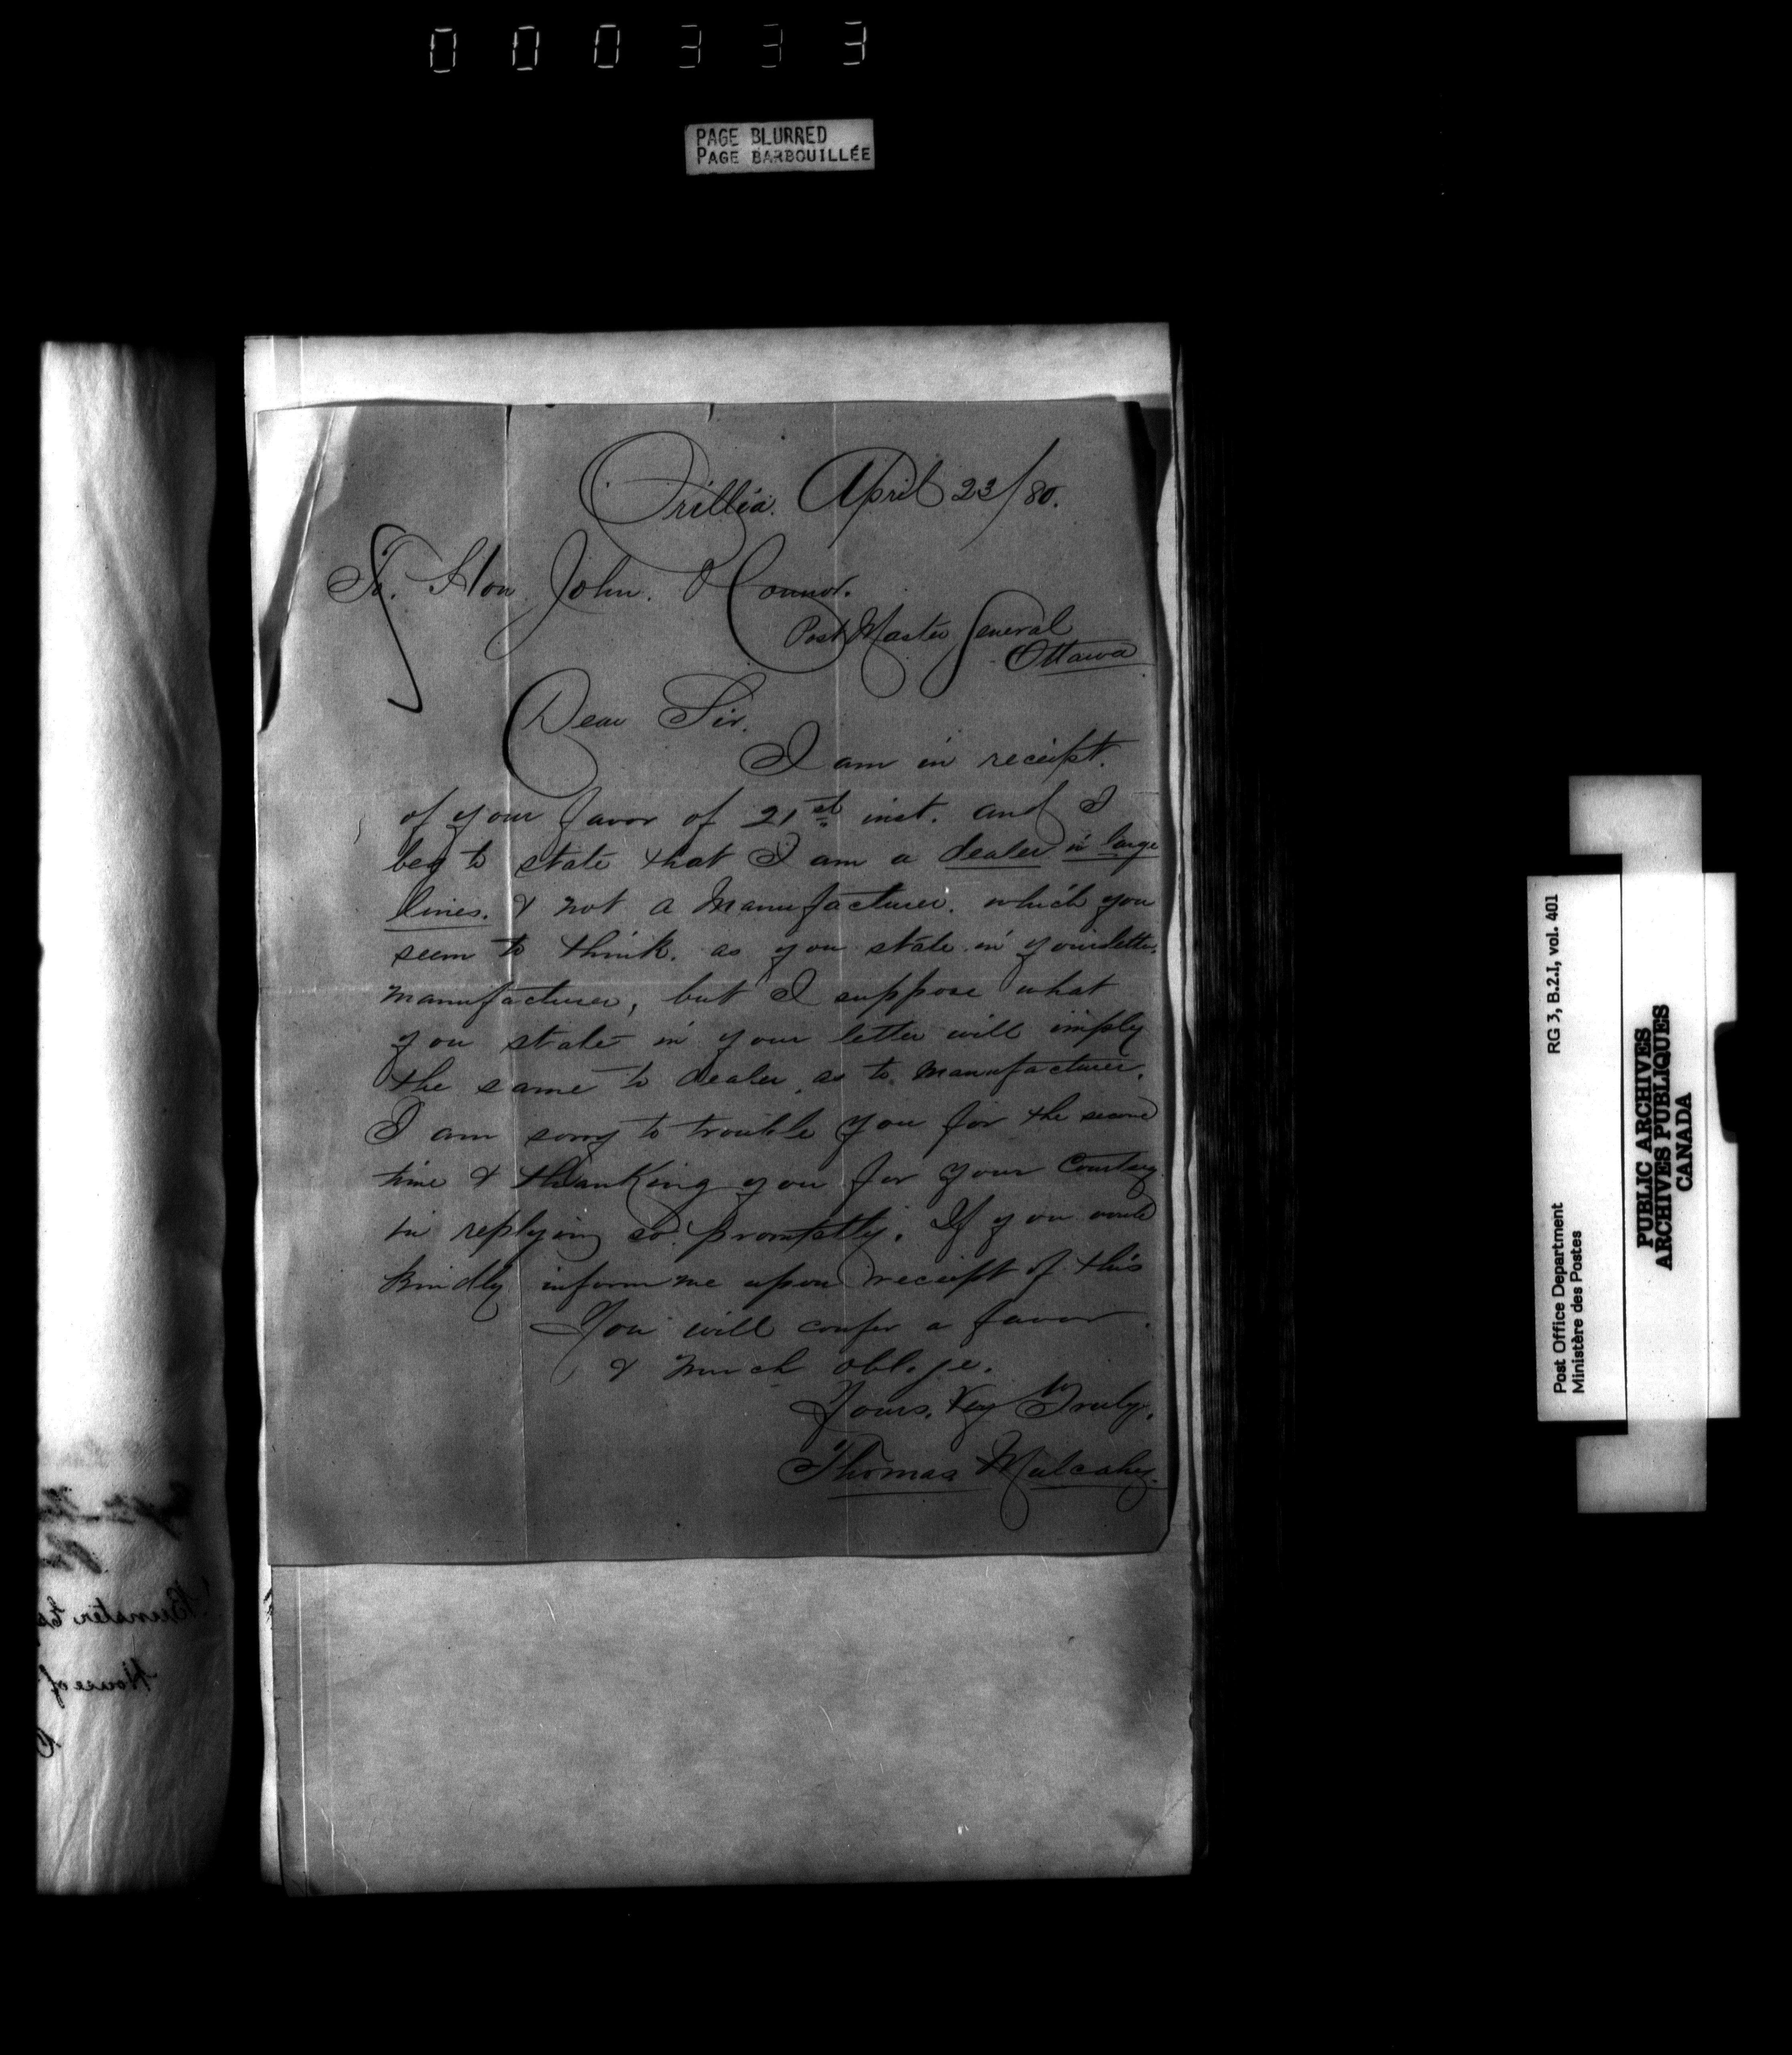 000333
PAGE BLURRED
PAGE BARBOUILLÉE
Orillia. April 23/80.
To. Hon. John. O Connor.
Post Master General
Ottawa
Dear Sir.
I am in receipt.
of your favor of 21st inst. and I
beg to state that I am a dealer in large
lines. & not a Manufacturer. which you
seem to think. as you state in your letter.
manufacturer, but I suppose what
you state in your letter will imply
the same to dealer, as to manufacturer.
I am sorry to trouble you for the second
time & thanking you for your Courtesy
in replying so promptly. If you would
kindly inform me upon receipt of this
You will confer a favor.
& much oblige.
Yours. Very Truly,
Thomas Mulcahy.
Bunster Es
House of
RG 3, B.2.I, vol. 401
Post Office Department
Ministère des Postes
PUBLIC ARCHIVES
ARCHIVES PUBLIQUES
CANADA